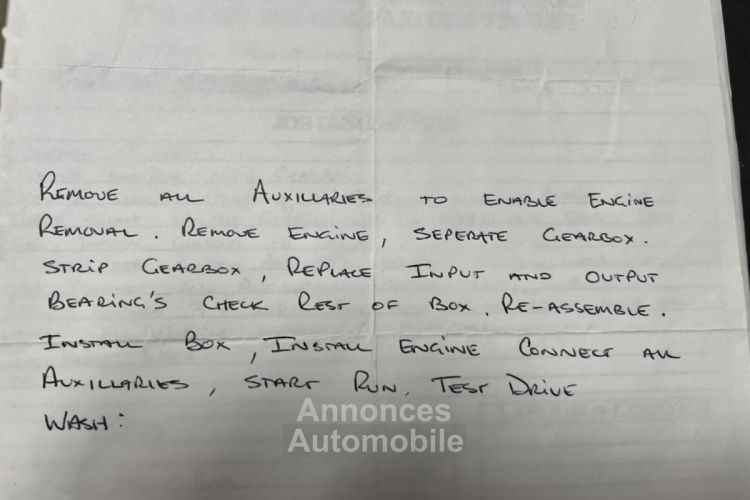 REMOVE ALL AUXILLARIES TO ENABLE ENGINE
REMOVAL. REMOVE ENGINE, SEPERATE GEARBOX.
STRIP GEARBOX, REPLACE INPUT AND OUTPUT
BEARING'S CHECK REST OF BOX. RE-ASSEMBLE.
INSTALL BOX, INSTALL ENGINE CONNECT ALL
AUXILLARIES, START RUN. TEST DRIVE
WASH:
Annonces
Automobile